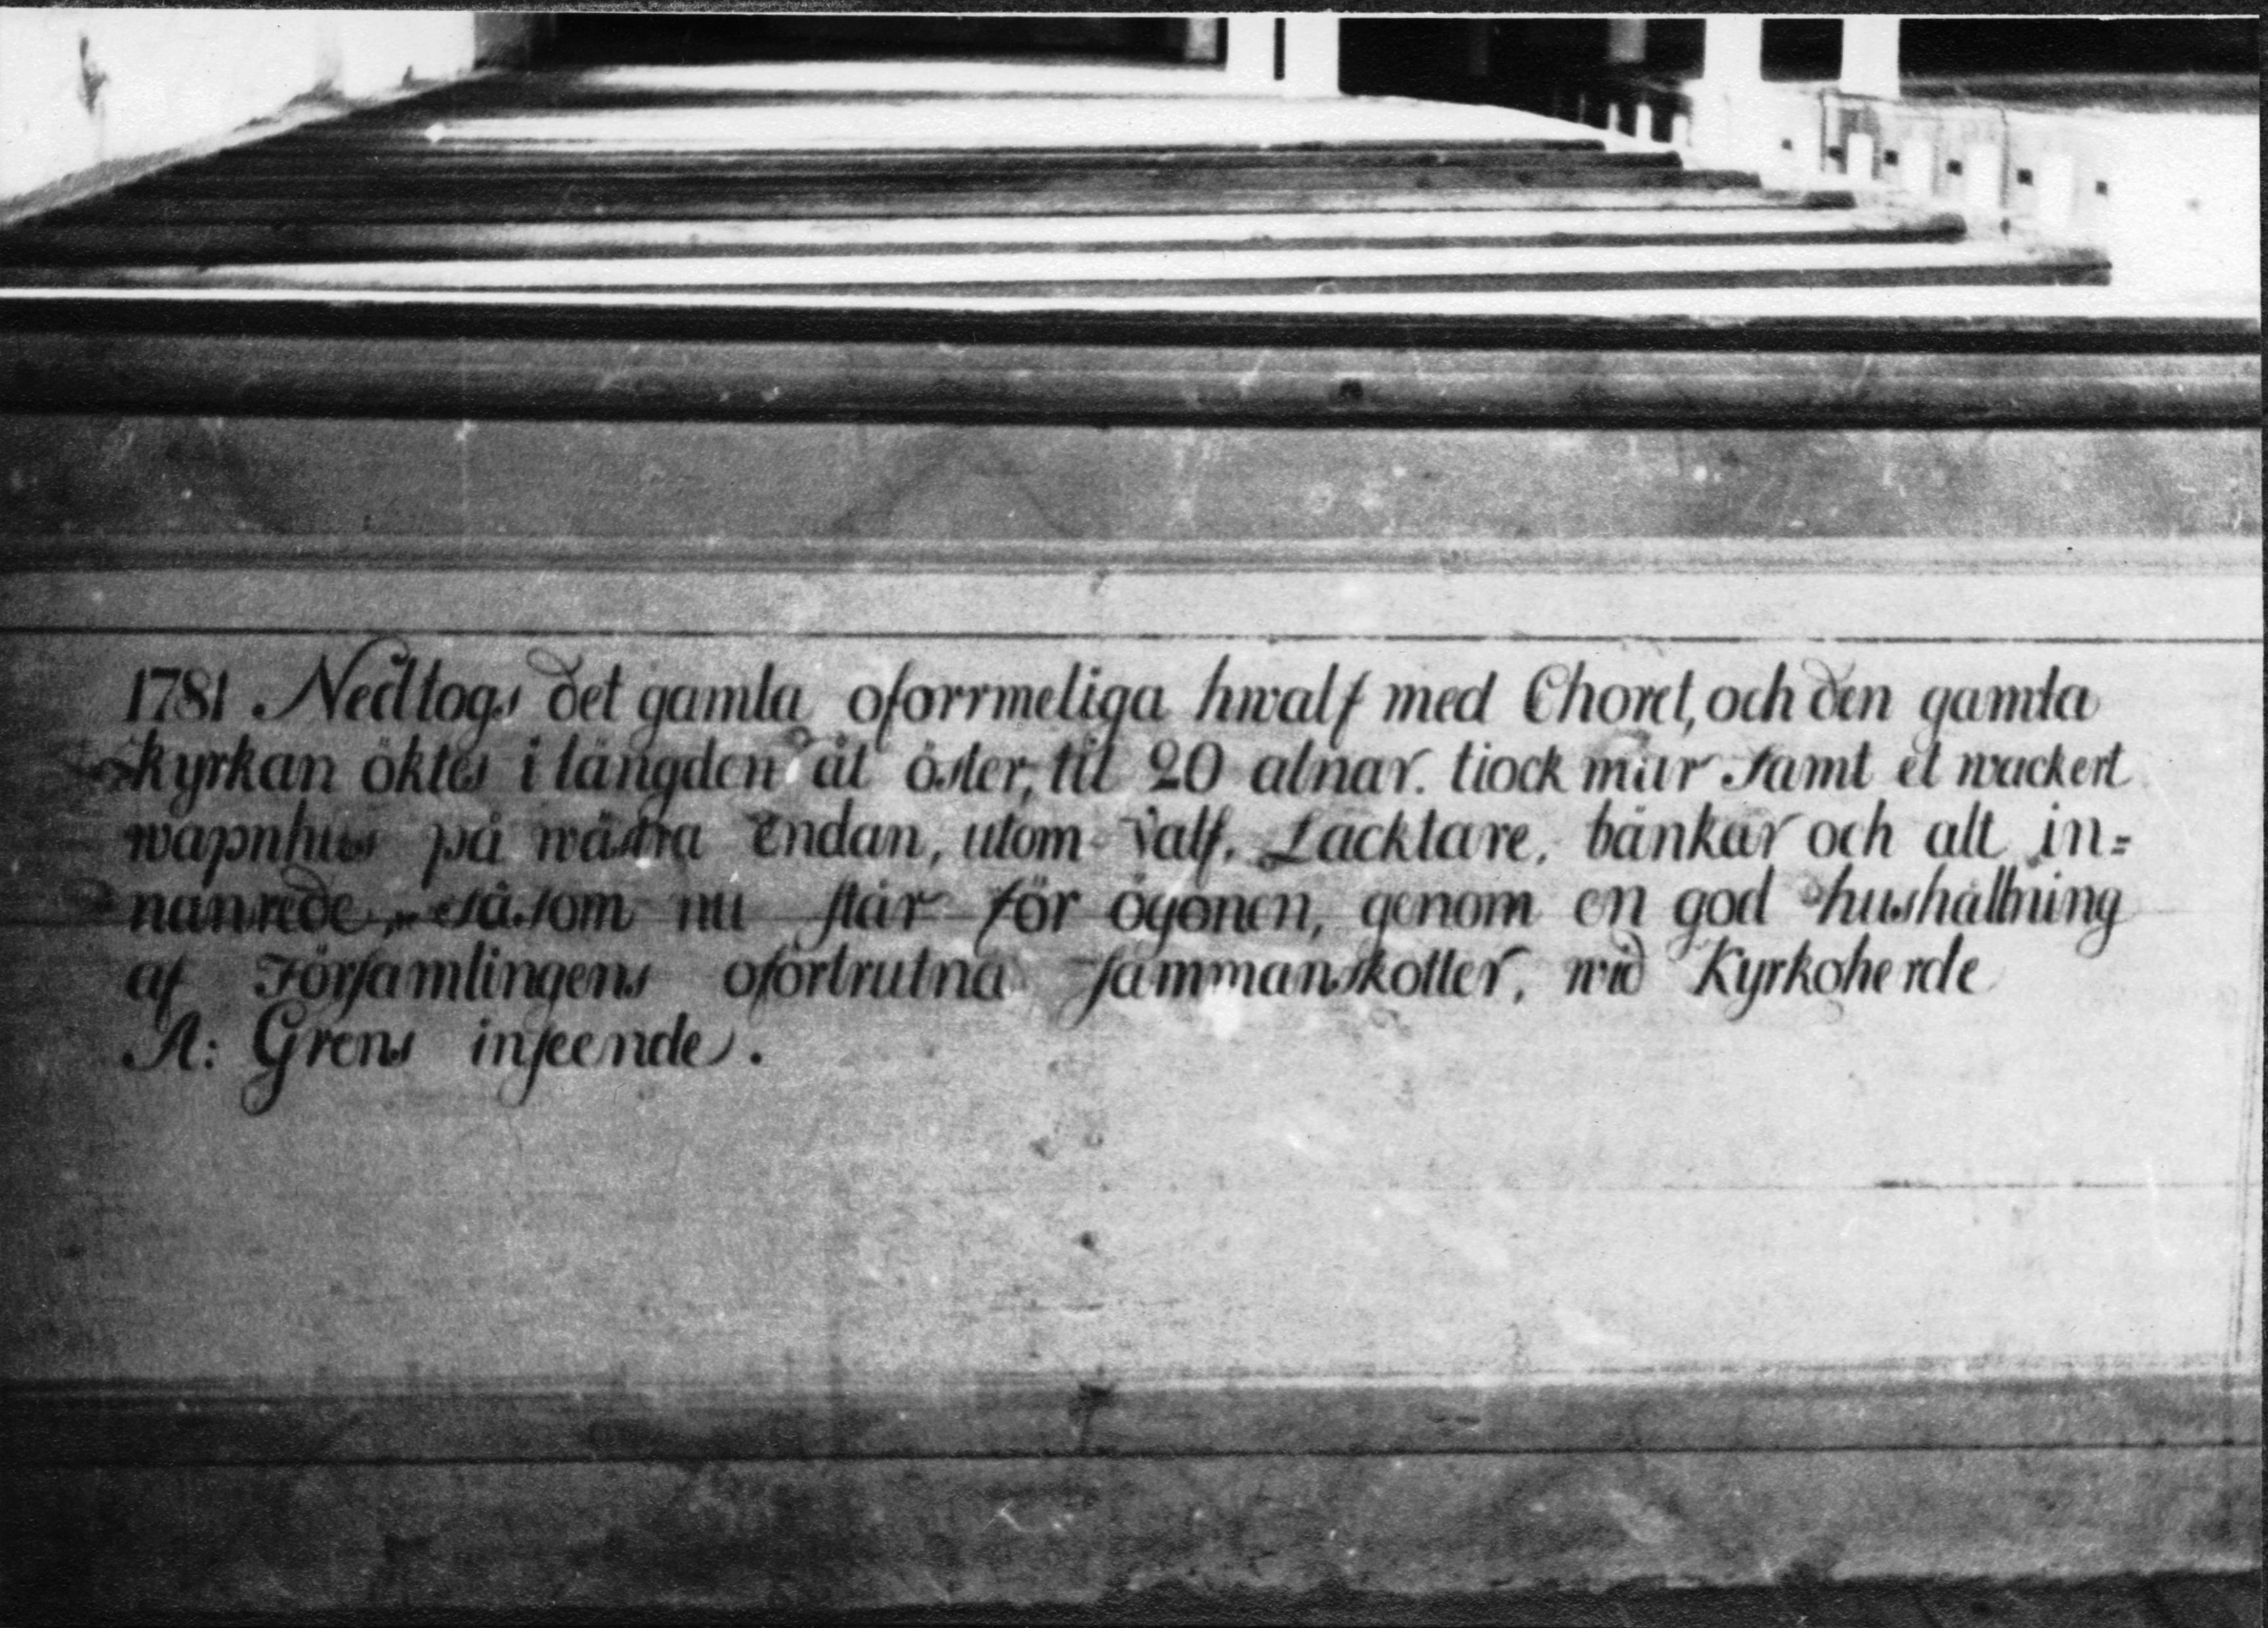 1781 Nedtogs det gamla oforrmeliga hwalf med Choret, och den gamla
kyrkan öktes i längden åt öster, til 20 alnar. tiock mur samt et wackert
wapnhus på wästra Endan, utom Valf, Lacktare, bänkar och alt in=
nanrede, såsom nu står för ögonen, genom en god hushållning
af Församlingens oförtrutna sammanskotter, wid Kyrkoherde
A: Grens inseende.